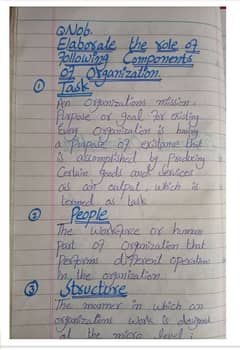 Q No6.
Elaborate the role of
following Components
of Organization.
① Task
An Organizations mission,
Purpose or goal for existing
Every Organization is having
a Purpose of existane that
is accomplished by Producing
Certain goods and services
as an output, which is
termed as task
② People
The workforce or human
Part of Organization that
Performs different operations
in the organization.
③ Structure
The manner in which an
organizations work is designed
at the micro level;